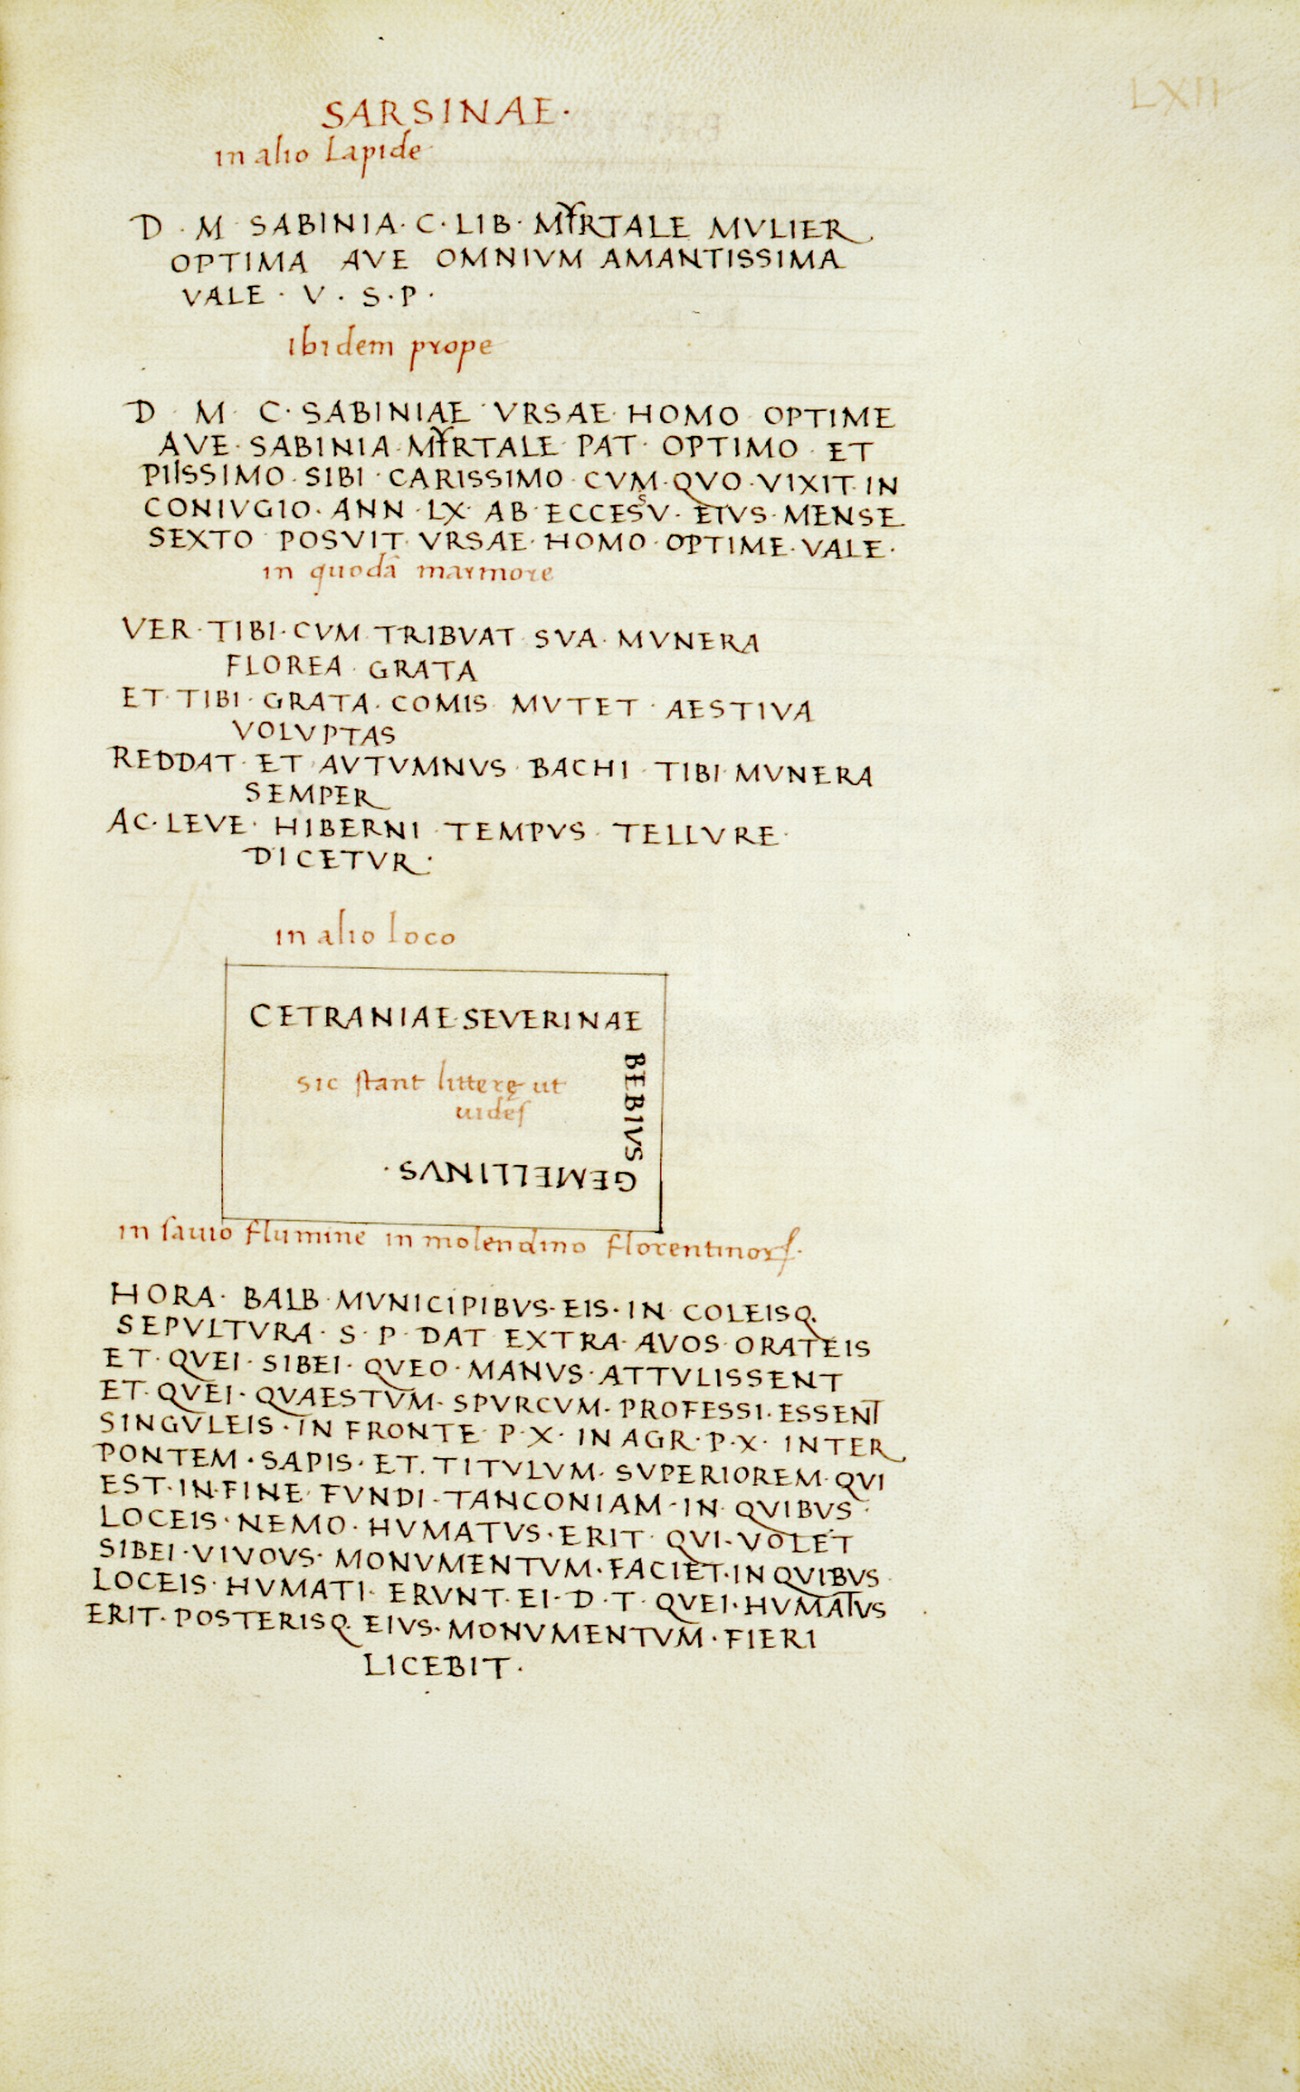 LXII
SARSINAE·
in alio Lapide
D · M · SABINIA· C · LIB · MYRTALE MVLIER
OPTIMA AVE OMNIVM AMANTISSIMA
VALE · V · S · P ·
Ibidem prope
D M C · SABINIAE VRSAE HOMO OPTIME
AVE · SABINIA MYRTALE PAT · OPTIMO ET
PIISSIMO · SIBI · CARISSIMO CVM · QVO · VIXIT IN
CONIVGIO · ANN · LX · AB · ECCESSV · EIVS · MENSE
SEXTO POSVIT VRSAE · HOMO · OPTIME · VALE ·
in quodā marmore
VER · TIBI · CVM TRIBVAT SVA · MVNERA
FLOREA GRATA
ET TIBI · GRATA · COMIS MVTET · AESTIVA
VOLVPTAS
REDDAT · ET AVTVMNVS BACHI TIBI MVNERA
SEMPER
AC · LEVE · HIBERNI TEMPVS TELLVRE ·
DICETVR ·
in alio loco
CETRANIAE SEVERINAE
BEBIVS
sic stant litterę ut
uides
GEMELLINVS ·
in sauio flumine in molendino florentinoꝝ ·
HORA · BALB MVNICIPIBVS · EIS · IN COLEISQ.
SEPVLTVRA · S · P DAT EXTRA · AVOS ORATEIS
ET · QVEI · SIBEI · QVEO · MANVS · ATTVLISSENT
ET · QVEI · QVAESTVM · SPVRCVM · PROFESSI · ESSENT
SINGVLEIS · IN FRONTE P · X · IN AGR · P · X · INTER
PONTEM · SAPIS · ET · TITVLVM · SVPERIOREM · QVI
EST · IN · FINE FVNDI · TANCONIAM · IN QVIBVS ·
LOCEIS · NEMO · HVMATVS · ERIT QVI · VOLET
SIBEI · VIVOVS · MONVMENTVM · FACIET · IN QVIBVS
LOCEIS · HVMATI · ERVNT · EI · D · T · QVEI · HVMATVS
ERIT · POSTERISQ. EIVS · MONVMENTVM · FIERI
LICEBIT ·